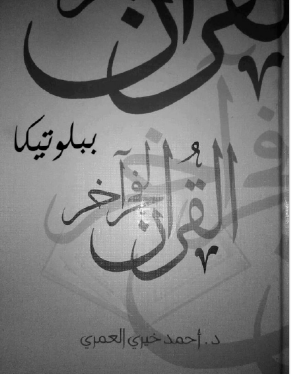 القرآن
ببلوتيكا
القرآن لفجر آخر
د. أحمد خيري العمري